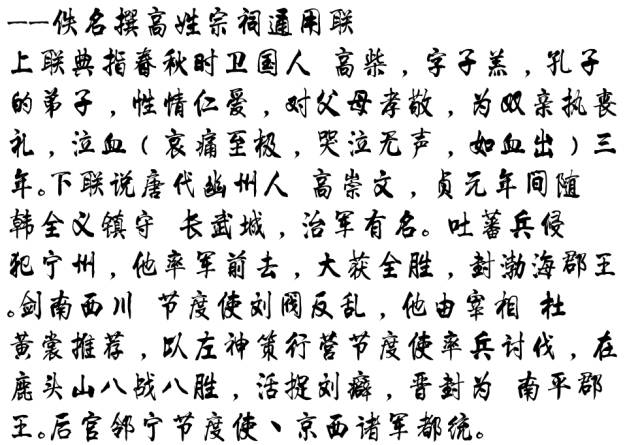 ——佚名撰高姓宗祠通用联
上联典指春秋时卫国人 高柴，字子羔，孔子
的弟子，性情仁爱，对父母孝敬，为双亲执丧
礼，泣血（哀痛至极，哭泣无声，如血出）三
年。下联说唐代幽州人 高崇文，贞元年间随
韩全义镇守 长武城，治军有名。吐蕃兵侵
犯宁州，他率军前去，大获全胜，封渤海郡王
。剑南西川 节度使刘阀反乱，他由宰相 杜
黄裳推荐，以左神策行营节度使率兵讨伐，在
鹿头山八战八胜，活捉刘癖，晋封为 南平郡
王。后官邻宁节度使、京西诸军都统。